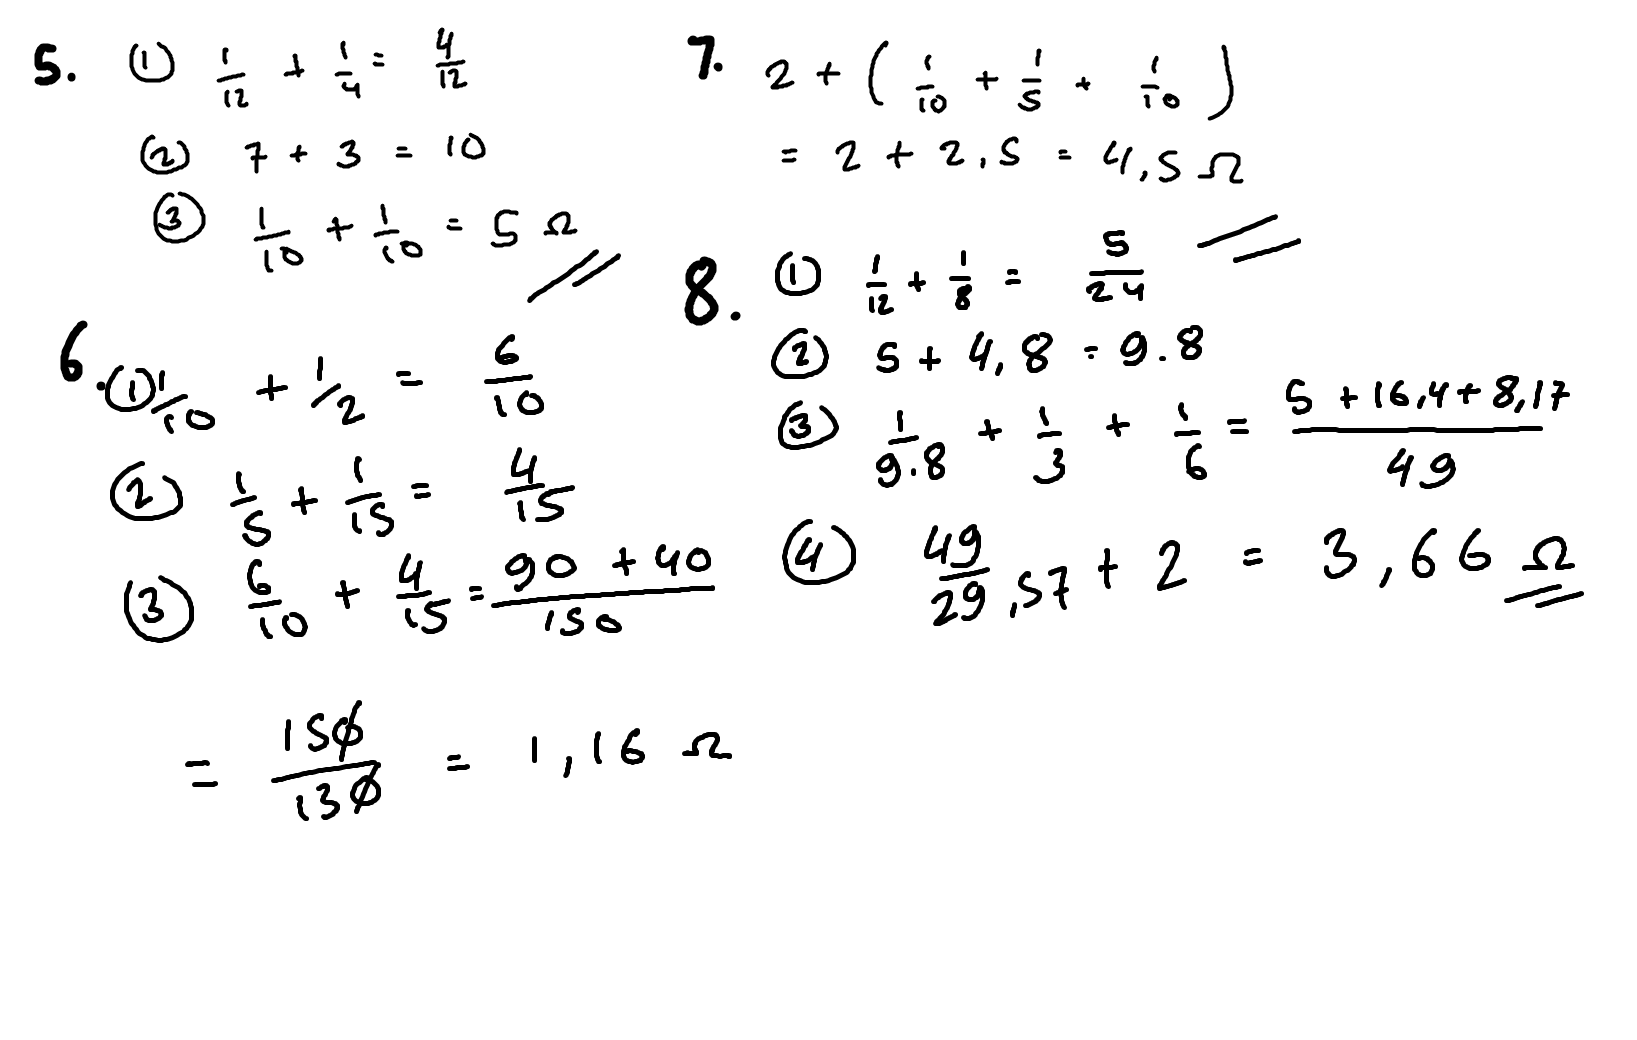 5. ① 1/12 + 1/4 = 4/12
② 7 + 3 = 10
③ 1/10 + 1/10 = 5 Ω
6. ① 1/10 + 1/2 = 6/10
② 1/5 + 1/15 = 4/15
③ 6/10 + 4/15 = (90 + 40)/150
= 150/130 = 1,16 Ω
7. 2 + (1/10 + 1/5 + 1/10)
= 2 + 2,5 = 4,5 Ω
8. ① 1/12 + 1/8 = 5/24
② 5 + 4,8 = 9.8
③ 1/9.8 + 1/3 + 1/6 = (5 + 16,4 + 8,17)/49
④ 49/29,57 + 2 = 3,66 Ω